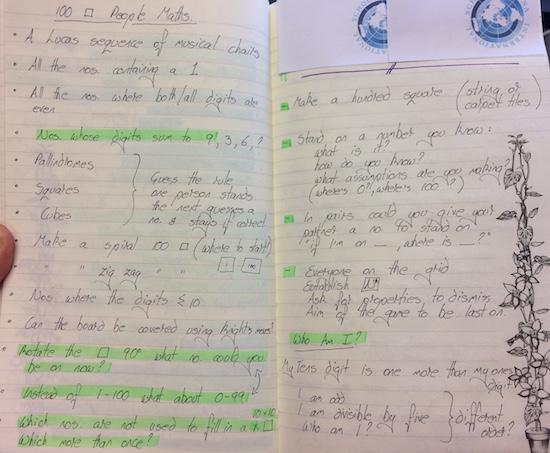 100 □ People Maths.
• A Lucas sequence of musical chairs
• All the nos. containing a 1
• All the nos. where both/all digits are
even
• Nos. whose digits sum to 9!, 3, 6, ?
• Palindromes
• Squares
• Cubes
Guess the rule
one person stands
the next guesses a
no. & stays if correct
• Make a spiral 100 □ (where to start?)
• " " zig zag " "
1 100
• Nos. where the digits ≤ 10
• Can the board be covered using Knights moves?
• Rotate the □ 90° what no. could you
be on now?
• Instead of 1-100 what about 0-99?
10×10
• Which nos. are not used to fill in a × □
Which more than once?
INTERNATIONAL
- Make a hundred square (string or
carpet tiles)
- Stand on a number you know:
what is it?
how do you know?
what assumptions are you making?
(where's 0?, where's 100?)
- In pairs could you give your
partner a no. to stand on.
"if I'm on __, where is __?"
- Everyone on the grid
Establish
Ask for properties, to dismiss
Aim of the game to be last on.
Who Am I?
My tens digit is one more than my ones
digit
I am odd
I am divisible by five
Who am I?
different
order?